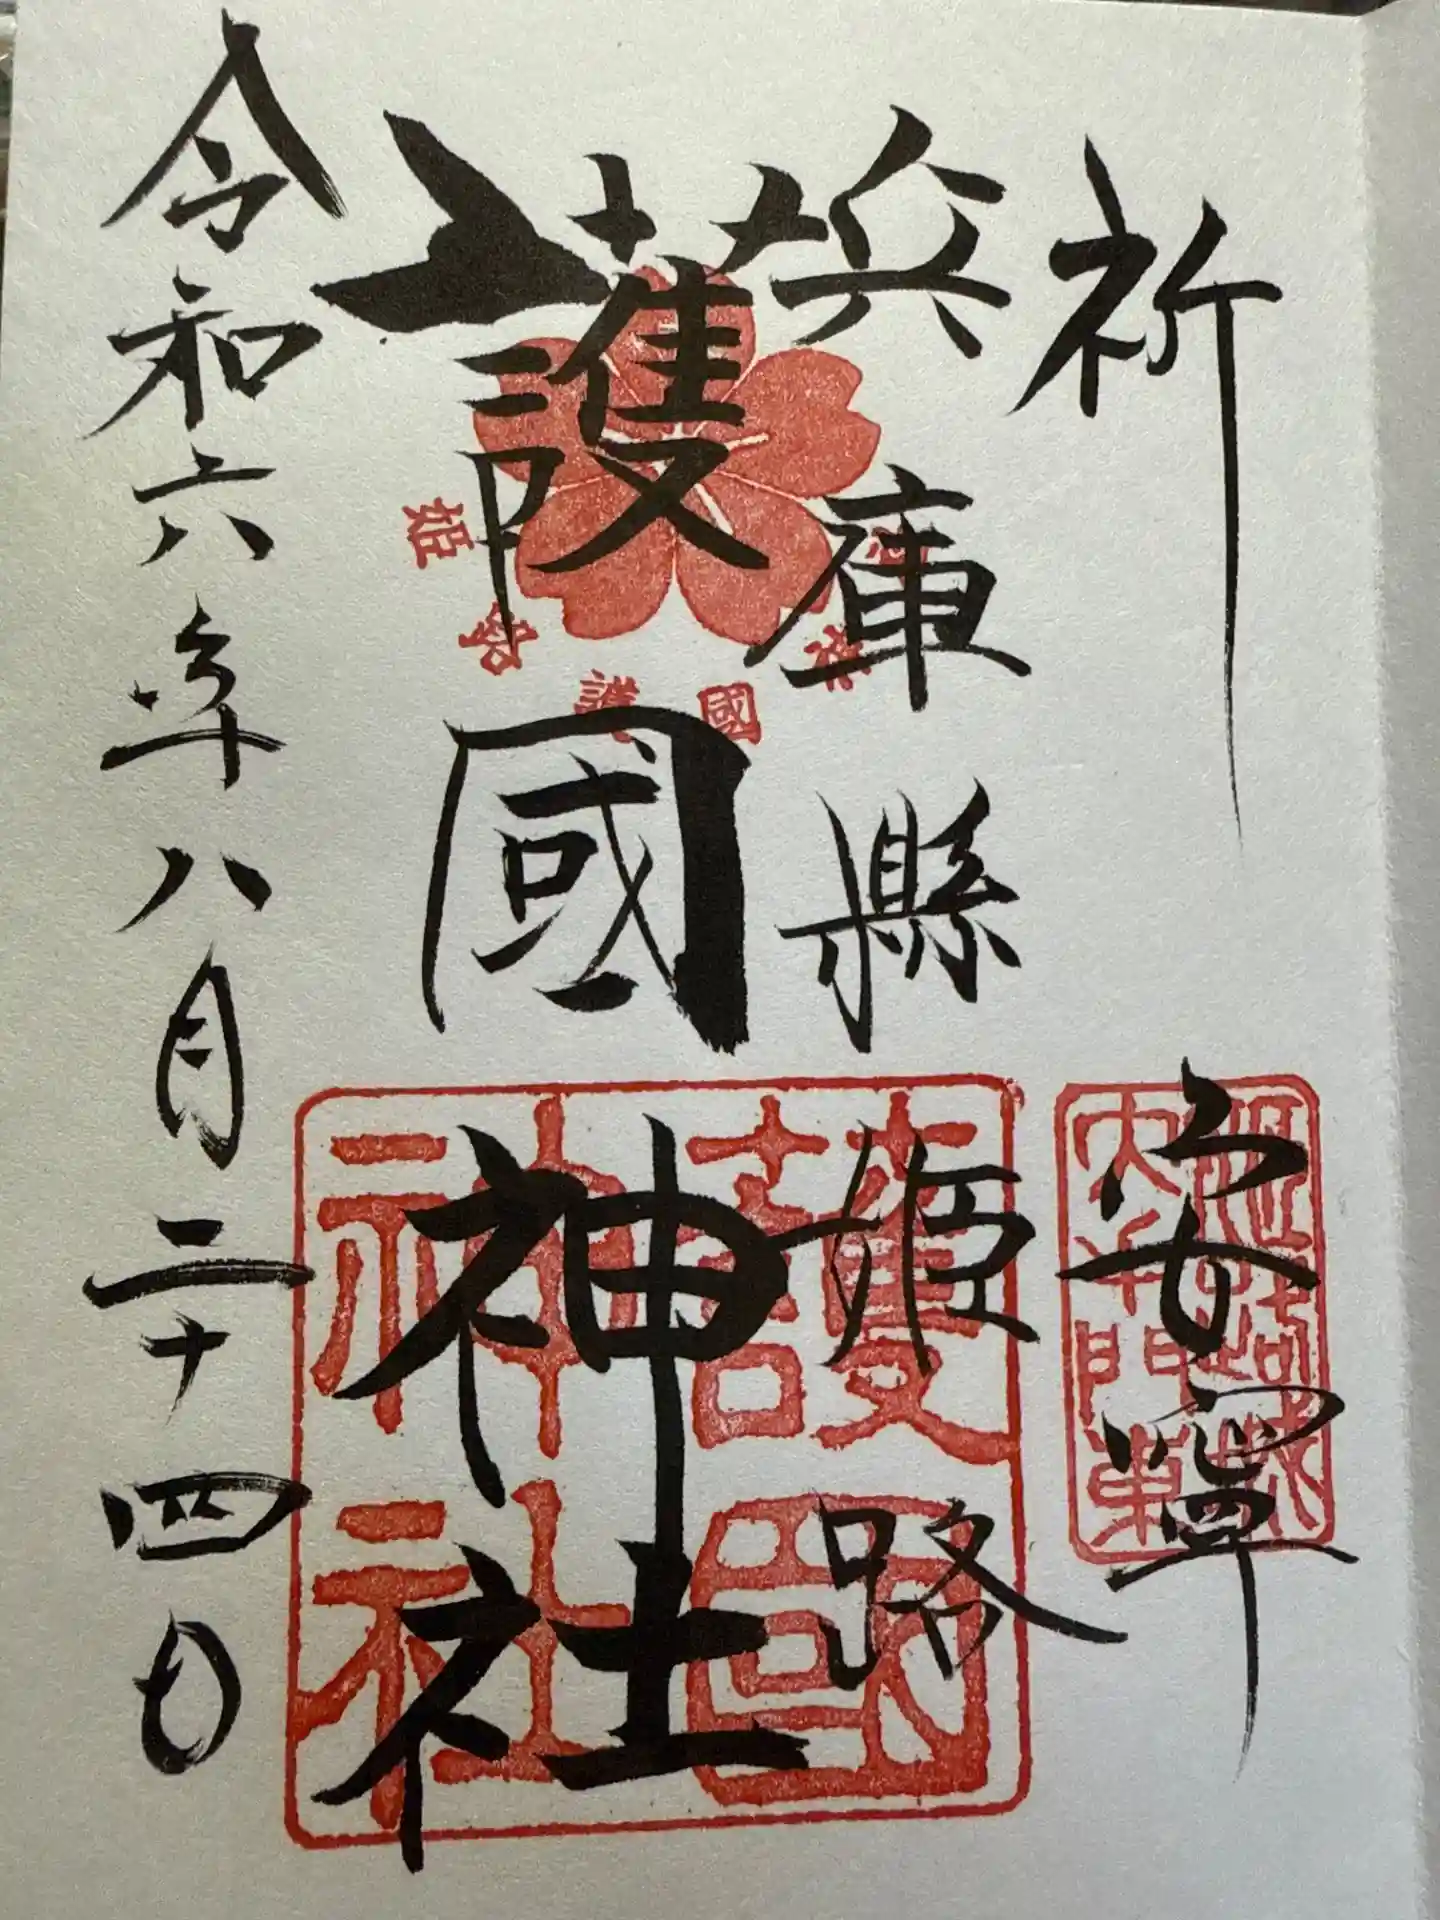 祈 安寧
兵庫縣姫路
護國神社
令和六年八月二十四日
姫路護國神社
護國神社
姫路城
大手門前